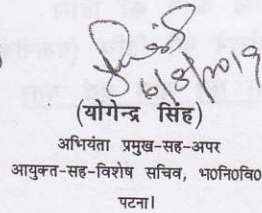 6/8/2019
(योगेन्द्र सिंह)
अभियंता प्रमुख-सह-अपर
आयुक्त-सह-विशेष सचिव, भ0नि0वि0
पटना।